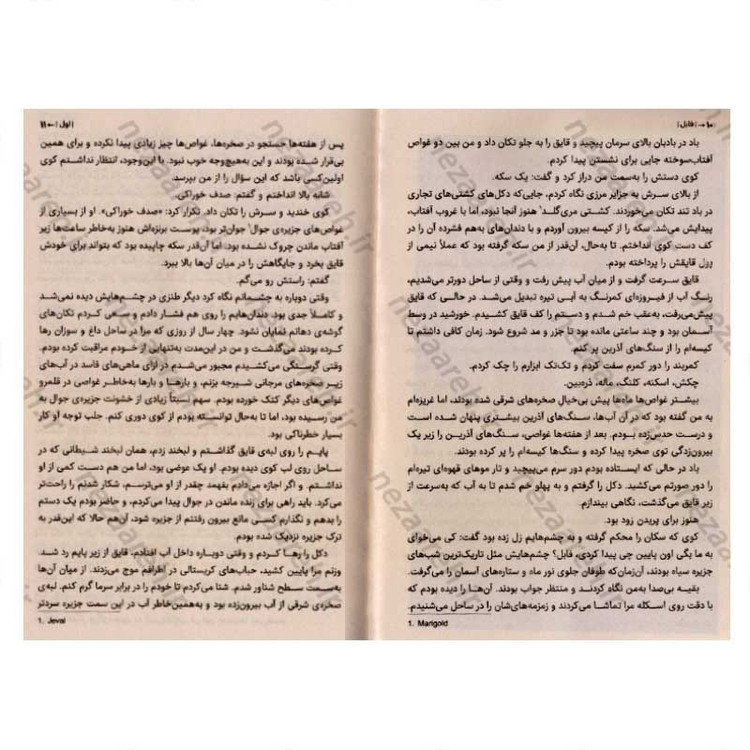 ۱۰ ← | فابل |
باد در بادبان بالای سرمان پیچید و قایق را به جلو تکان داد و من بین دو غواص
آفتاب‌سوخته جایی برای نشستن پیدا کردم.
کوی دستش را به‌سمت من دراز کرد و گفت: یک سکه.
از بالای سرش به جزایر مرزی نگاه کردم، جایی‌که دکل‌های کشتی‌های تجاری
در باد تند تکان می‌خوردند. کشتی مری‌گلد¹ هنوز آنجا نبود، اما با غروب آفتاب،
پیدایش می‌شد. سکه را از کیسه بیرون آوردم و با دندان‌های به‌هم فشرده آن را در
کف دست کوی انداختم. تا به‌حال، آن‌قدر از من سکه گرفته بود که عملاً نیمی از
پول قایقش را پرداخته بودم.
قایق سرعت گرفت و از میان آب پیش رفت و وقتی از ساحل دورتر می‌شدیم،
رنگ آب از فیروزه‌ای کمرنگ به آبی تیره تبدیل می‌شد. در حالی که قایق
پیش‌می‌رفت، به‌عقب خم شدم و دستم را کف قایق کشیدم. خورشید در وسط
آسمان بود و چند ساعتی مانده بود تا جزر و مد شروع شود. زمان کافی داشتم تا
کیسه‌ام را از سنگ‌های آذرین پر کنم.
کمربند را دور کمرم سفت کردم و تک‌تک ابزارم را چک کردم.
چکش، اسکنه، کلنگ، ماله، ذره‌بین.
بیشتر غواص‌ها ماه‌ها پیش بی‌خیال صخره‌های شرقی شده بودند، اما غریزه‌ام
به من گفته بود که در آن آب‌ها، سنگ‌های آذرین بیشتری پنهان شده است
و درست حدس‌زده بودم. بعد از هفته‌ها غواصی، سنگ‌های آذرین را زیر یک
بیرون‌زدگی توی صخره پیدا کرده و سنگ‌ها کیسه‌ام را پر کرده بودند.
باد در حالی که ایستاده بودم دور سرم می‌پیچید و تار موهای قهوه‌ای تیره‌ام
را دور صورتم می‌کشید. دکل را گرفتم و به پهلو خم شدم تا به آب که به‌سرعت از
زیر قایق می‌گذشت، نگاهی بیندازم.
هنوز برای پریدن زود بود.
کوی که سکان را محکم گرفته و به چشم‌هایم زل زده بود گفت: کی می‌خوای
به ما بگی اون پایین چی پیدا کردی، فابل؟ چشم‌هایش مثل تاریک‌ترین شب‌های
جزیره سیاه بودند، آن‌زمان‌که طوفان جلوی نور ماه و ستاره‌های آسمان را می‌گرفت.
بقیه بی‌صدا به‌من نگاه کردند و منتظر جواب بودند. آن‌ها را دیده بودم که
با دقت روی اسکله مرا تماشا می‌کردند و زمزمه‌های‌شان را در ساحل می‌شنیدم.
1. Marigold
| اول | ← ۱۱
پس از هفته‌ها جستجو در صخره‌ها، غواص‌ها چیز زیادی پیدا نکرده و برای همین
بی‌قرار شده بودند و این به‌هیچ‌وجه خوب نبود. با این‌وجود، انتظار نداشتم کوی
اولین‌کسی باشد که این سؤال را از من بپرسد.
شانه بالا انداختم و گفتم: صدف خوراکی.
کوی خندید و سرش را تکان داد. تکرار کرد: «صدف خوراکی». او از بسیاری از
غواص‌های جزیره‌ی جوال¹ جوان‌تر بود، پوست برنزه‌اش هنوز به‌خاطر ساعت‌ها زیر
آفتاب ماندن چروک نشده بود، اما آن‌قدر سکه چاپیده بود که بتواند برای خودش
قایق بخرد و جایگاهش را در میان آن‌ها بالا ببرد.
گفتم: راستش رو می‌گم.
وقتی دوباره به چشمانم نگاه کرد دیگر طنزی در چشم‌هایش دیده نمی‌شد
و کاملاً جدی بود. دندان‌هایم را روی هم فشار دادم و سعی کردم تکان‌های
گوشه‌ی دهانم نمایان نشود. چهار سال از روزی که مرا در ساحل داغ و سوزان رها
کرده بودند می‌گذشت و من در این‌مدت به‌تنهایی از خودم مراقبت کرده بودم.
وقتی گرسنگی می‌کشیدم مجبور می‌شدم در ازای ماهی‌های فاسد در آب‌های
زیر صخره‌های مرجانی شیرجه بزنم، و بارها و بارها به‌خاطر غواصی در قلمرو
غواص‌های دیگر کتک خورده بودم. سهم نسبتاً زیادی از خشونت جزیره‌ی جوال به
من رسیده بود، اما تا به‌حال توانسته بودم از کوی دوری کنم. جلب توجه او کار
بسیار خطرناکی بود.
پایم را روی لبه‌ی قایق گذاشتم و لبخند زدم، همان لبخند شیطانی که در
ساحل روی لب کوی دیده بودم. او یک عوضی بود، اما من هم دست کمی از او
نداشتم. و اگر اجازه می‌دادم بفهمد چقدر از او می‌ترسم، شکار شدنم را راحت‌تر
می‌کرد. باید راهی برای زنده ماندن در جوال پیدا می‌کردم، و حاضر بودم یک دستم
را بدهم و نگذارم کسی مانع بیرون رفتنم از جزیره شود، آن‌هم حالا که این‌قدر به
ترک جزیره نزدیک شده بودم.
دکل را رها کردم و وقتی دوباره داخل آب افتادم، قایق از زیر پایم رد شد.
وزنم مرا پایین کشید، حباب‌های کریستالی در اطرافم موج می‌زدند. از میان آن‌ها
به‌سمت سطح شناور شدم. شنا می‌کردم تا خودم را در برابر سرما گرم کنم. لبه‌ی
صخره‌ی شرقی از آب بیرون‌زده بود و به‌همین‌خاطر آب در این سمت جزیره سردتر
1. Jeval
nezaareh.ir